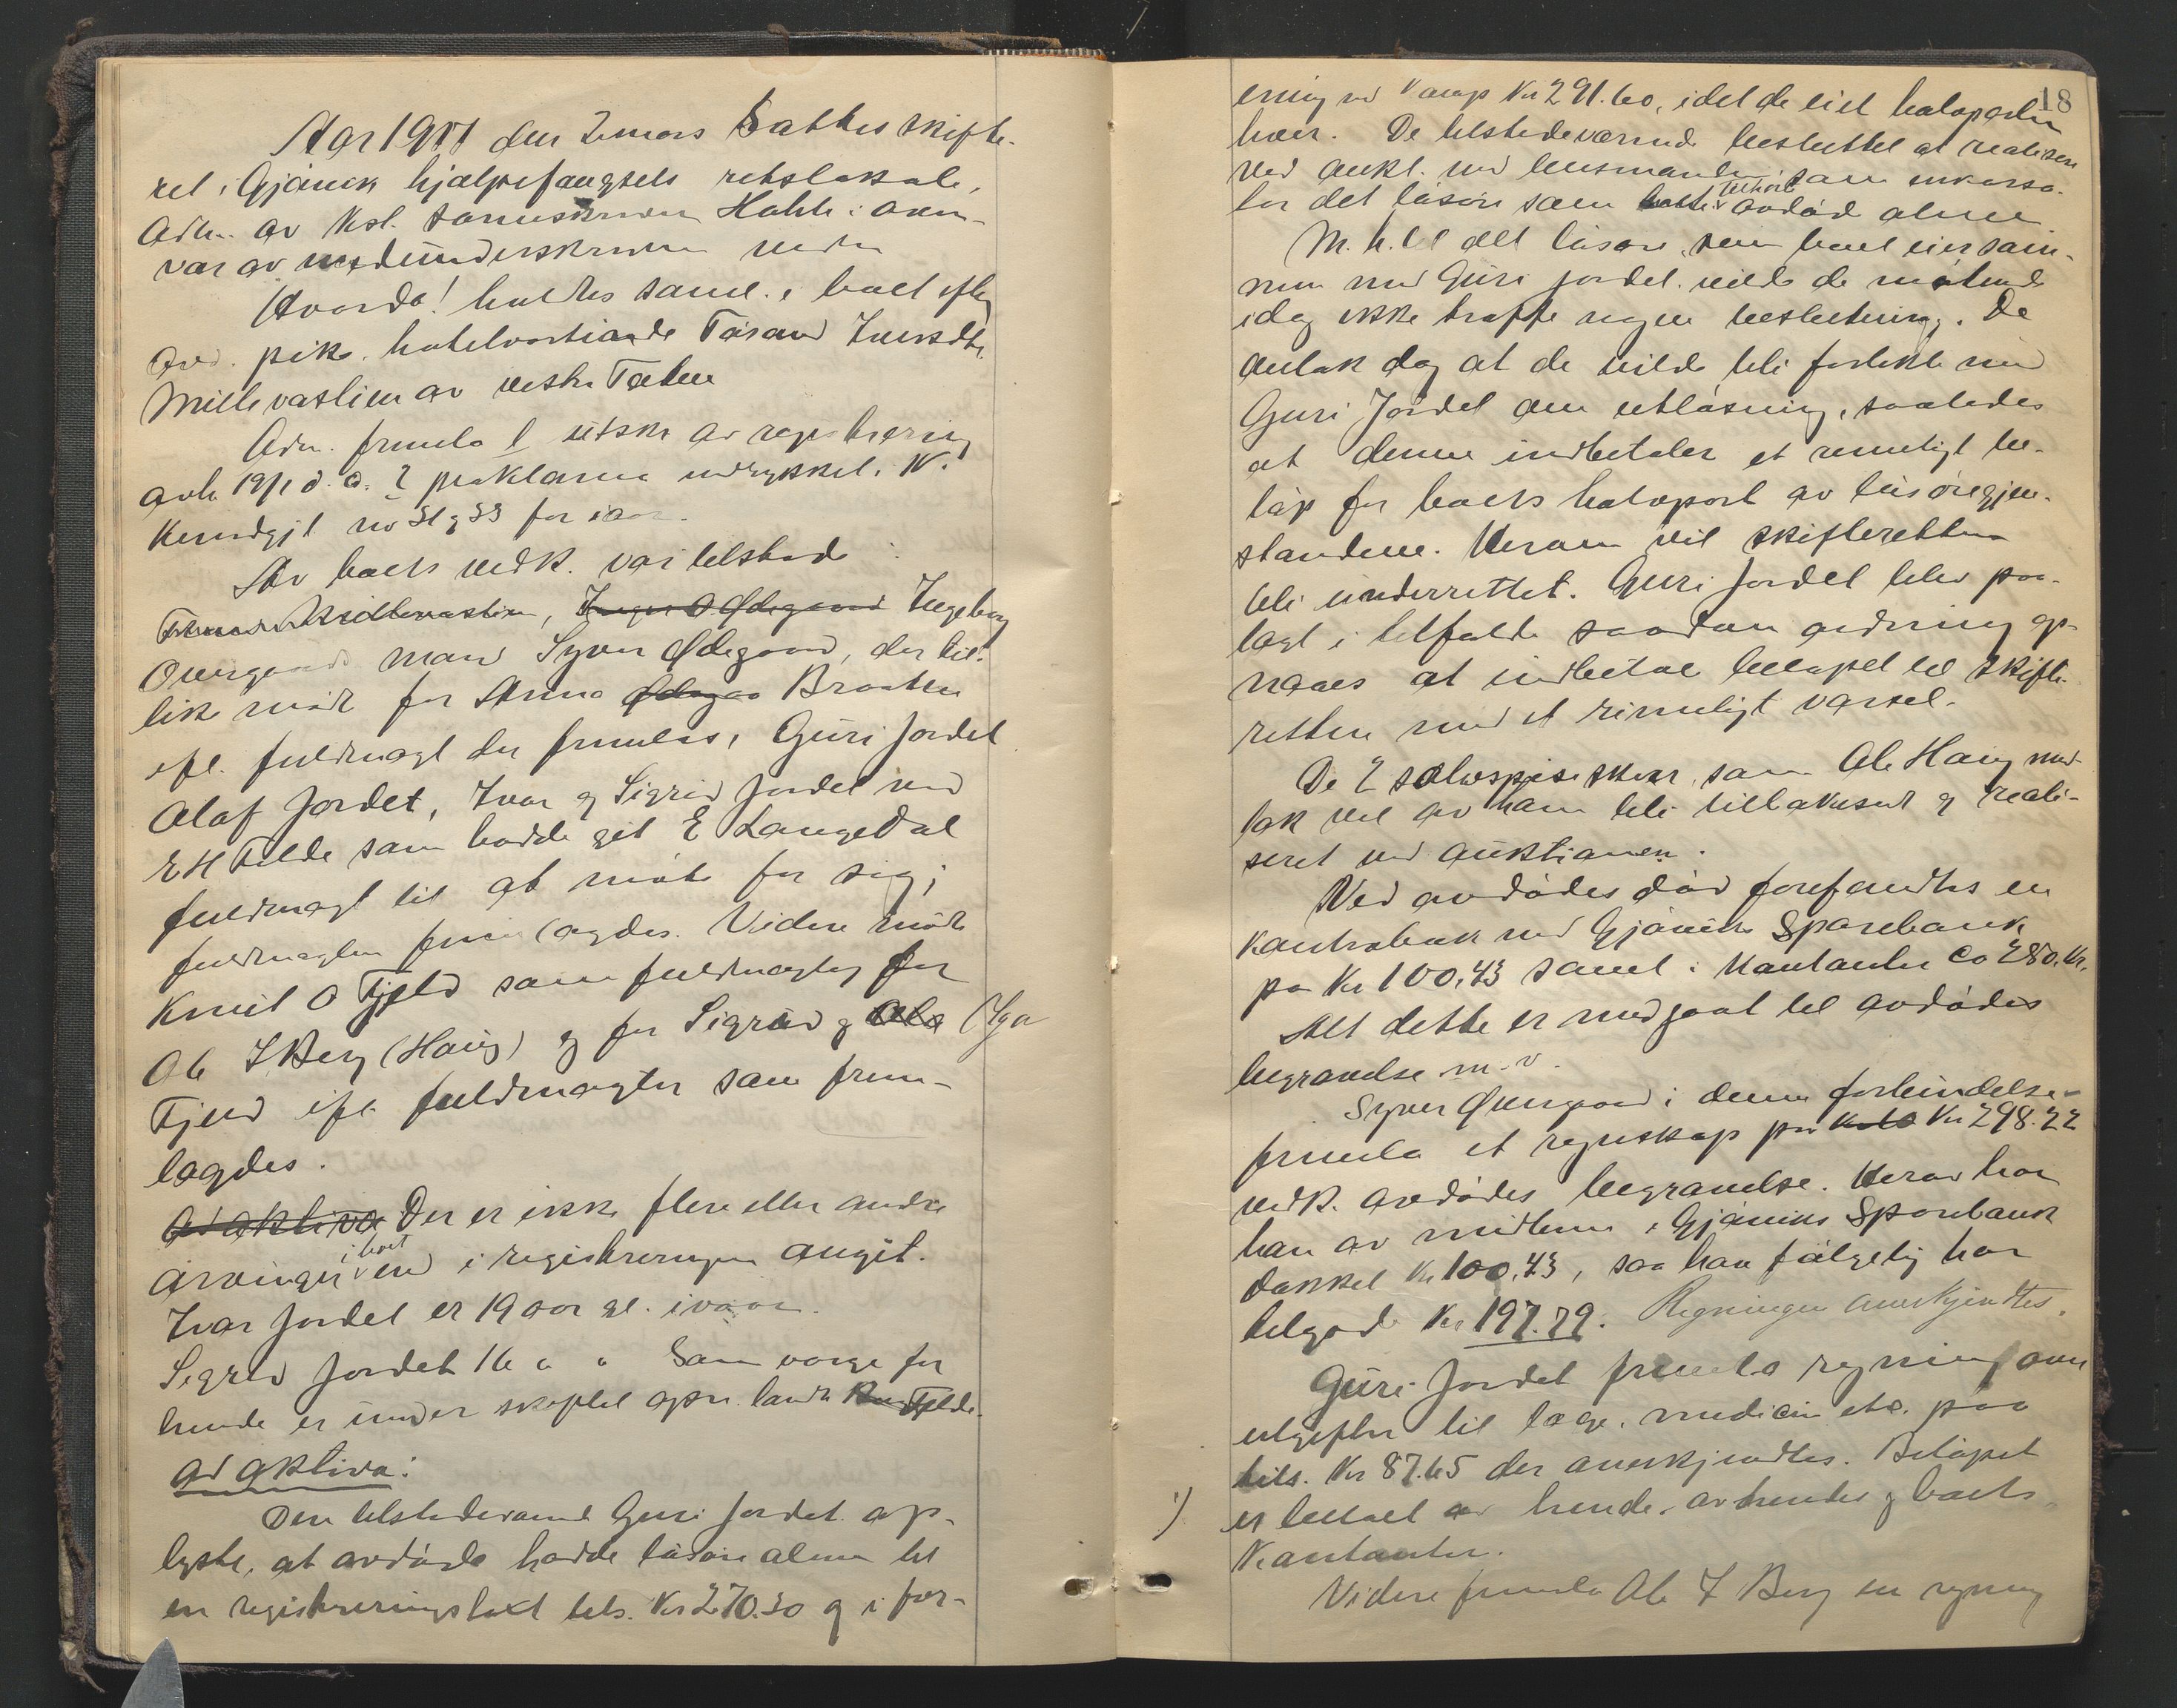 Aar 1911 den 2 mars sattes skifte-
ret i Gjøvik hjælpefængsels retslokale,
Adm. av kst. sorenskriver Holth i
var av medunderskrevne
Hvorda! holdtes saml. i boet efter
avd. pike, hotelvertinde Iversdtr.
Midlevaslien av vestre Toten
Adm. fremla 1 utskr av registrering
avh 19/1 d. a. 2 proklama indrykket i N.
Kundgj for iaar.
Av boets vedk. var tilstede:
Midlevaslien, Inger O. Ødegaard Ingeborg
Overgaards man Syver Ødegaard, der til-
like møtte for Anna Braaten
ifl. fuldmagt der fremlas, Guri Jordet
Olaf Jordet, Ivar og Sigrid Jordet ved
E H Fjelde som hadde git E Langedal
fuldmagt til at møte for sig;
fuldmagten frem lagdes. Videre møtte
Knut O Fjeld som fuldmægtig for
Ole I Berg (Haug) og for Sigrid og Olga
Fjeld ifl. fuldmagter som frem-
lagdes.
ad aktiva Der er ikke flere eller andre
arvinger i boet end i registreringen angit.
Ivar Jordet er 19 aar gl. i vaar.
Sigrid Jordet 16 " " Som verge for
hende er under skiftet opn. landh Fjelde.
ad aktiva:
Den tilstedeværende Guri Jordet op-
lyste, at avdøde hadde løsøre alene til
en registreringstakst tils. Kr 270.30 og i for-
18
ening med Kr 291.60, idet de eiet halvparten
hver. De tilstedeværende besluttet at realisere
ved aukt. ved lensmanden som inkasso-
tor det løsøre som tilhørte avdød alene
M. h. til det løsøre, som boet eier sam-
men med Guri Jordet vilde de møtende
idag ikke træffe nogen beslutning. De
antok dog at de vilde bli forlikte med
Guri Jordet om utløsning, saaledes
at denne indbetaler et rimeligt be-
løp for boets halvpart av løsøregjen-
standene. Herom vil skifteretten
bli underrettet. Guri Jordet blev paa-
lagt i tilfælde saadan ordning op-
naaes at indbetale beløpet til skifte-
retten med et rimeligt varsel.
De 2 sølvspiseskeer som Ole Haug mod-
tok vil av ham bli tilbakesendt og reali-
seret ved auktionen.
Ved avdødes død forefandtes en
kontrabok med Gjøviks Sparebank
pa Kr 100,43 samt i Kontanter ca 280. kr.
Alt dette er medgaat til avdødes
begravelse m. v.
Syver Overgaard i denne forbindelse
fremla et regnskap på Kr 298.22
vedk. avdødes begravelse. Herav har
han av midlerne i Gjøviks Sparebank
dækket Kr 100,43, saa han følgelig har
tilgode Kr. 197.79. Regningen anerkjendtes.
Guri Jordet fremla regning over
utgifter til læge, medicin etc. paa
tils. Kr 87.65 der anerkjendtes. Beløpet
1) er betalt av hende av hendes og boets
Kontanter.
Videre fremla Ole I Berg en regning